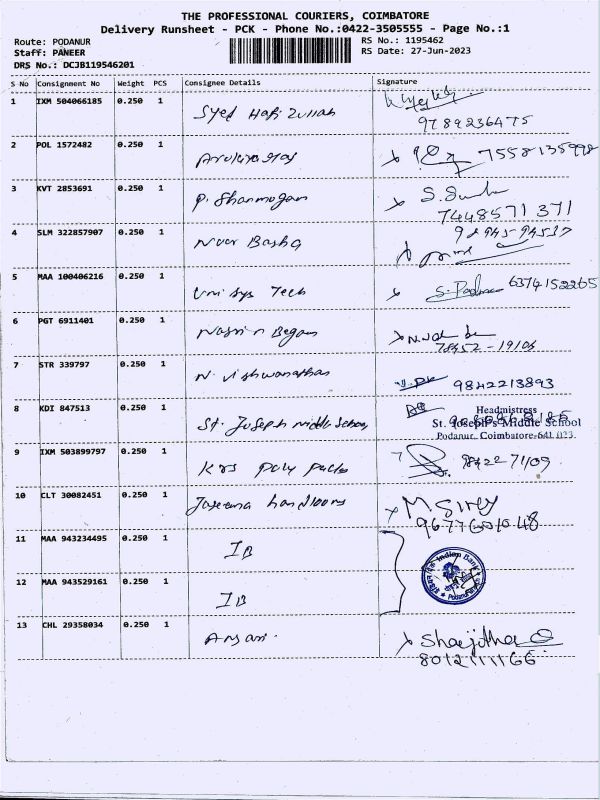 THE PROFESSIONAL COURIERS, COIMBATORE
Delivery Runsheet - PCK - Phone No.:0422-3505555 - Page No.:1
Route: PODANUR
RS No.: 1195462
Staff: PANEER
RS Date: 27-Jun-2023
DRS No.: DCJB119546201
S No Consignment No Weight PCS Consignee Details Signature
1 IXM 504066185 0.250 1 Syed Hafizullah
9789236475
2 POL 1572482 0.250 1 Arokiyaraj 7558135998
3 KVT 2853691 0.250 1 P. Shanmogam
7448571371
4 SLM 322857907 0.250 1 Noor Basha 98945 94537
5 MAA 100406216 0.250 1 Uni sys Tech 6374152265
6 PGT 6911401 0.250 1 Nasrin Begam
78452-19106
7 STR 339797 0.250 1 N. vishwanathan 9842213893
8 KDI 847513 0.250 1 St. Joseph middle School
Headmistress
St. Joseph's Middle School
Podanur, Coimbatore-641 023.
9 IXM 503899797 0.250 1 Krs Poly Packs 98422 71109
10 CLT 30082451 0.250 1 Jaseema handlooms
9677601048
11 MAA 943234495 0.250 1 IB
Indian Bank
12 MAA 943529161 0.250 1 IB
13 CHL 29358034 0.250 1 Ansari. Shajitha
8012111166